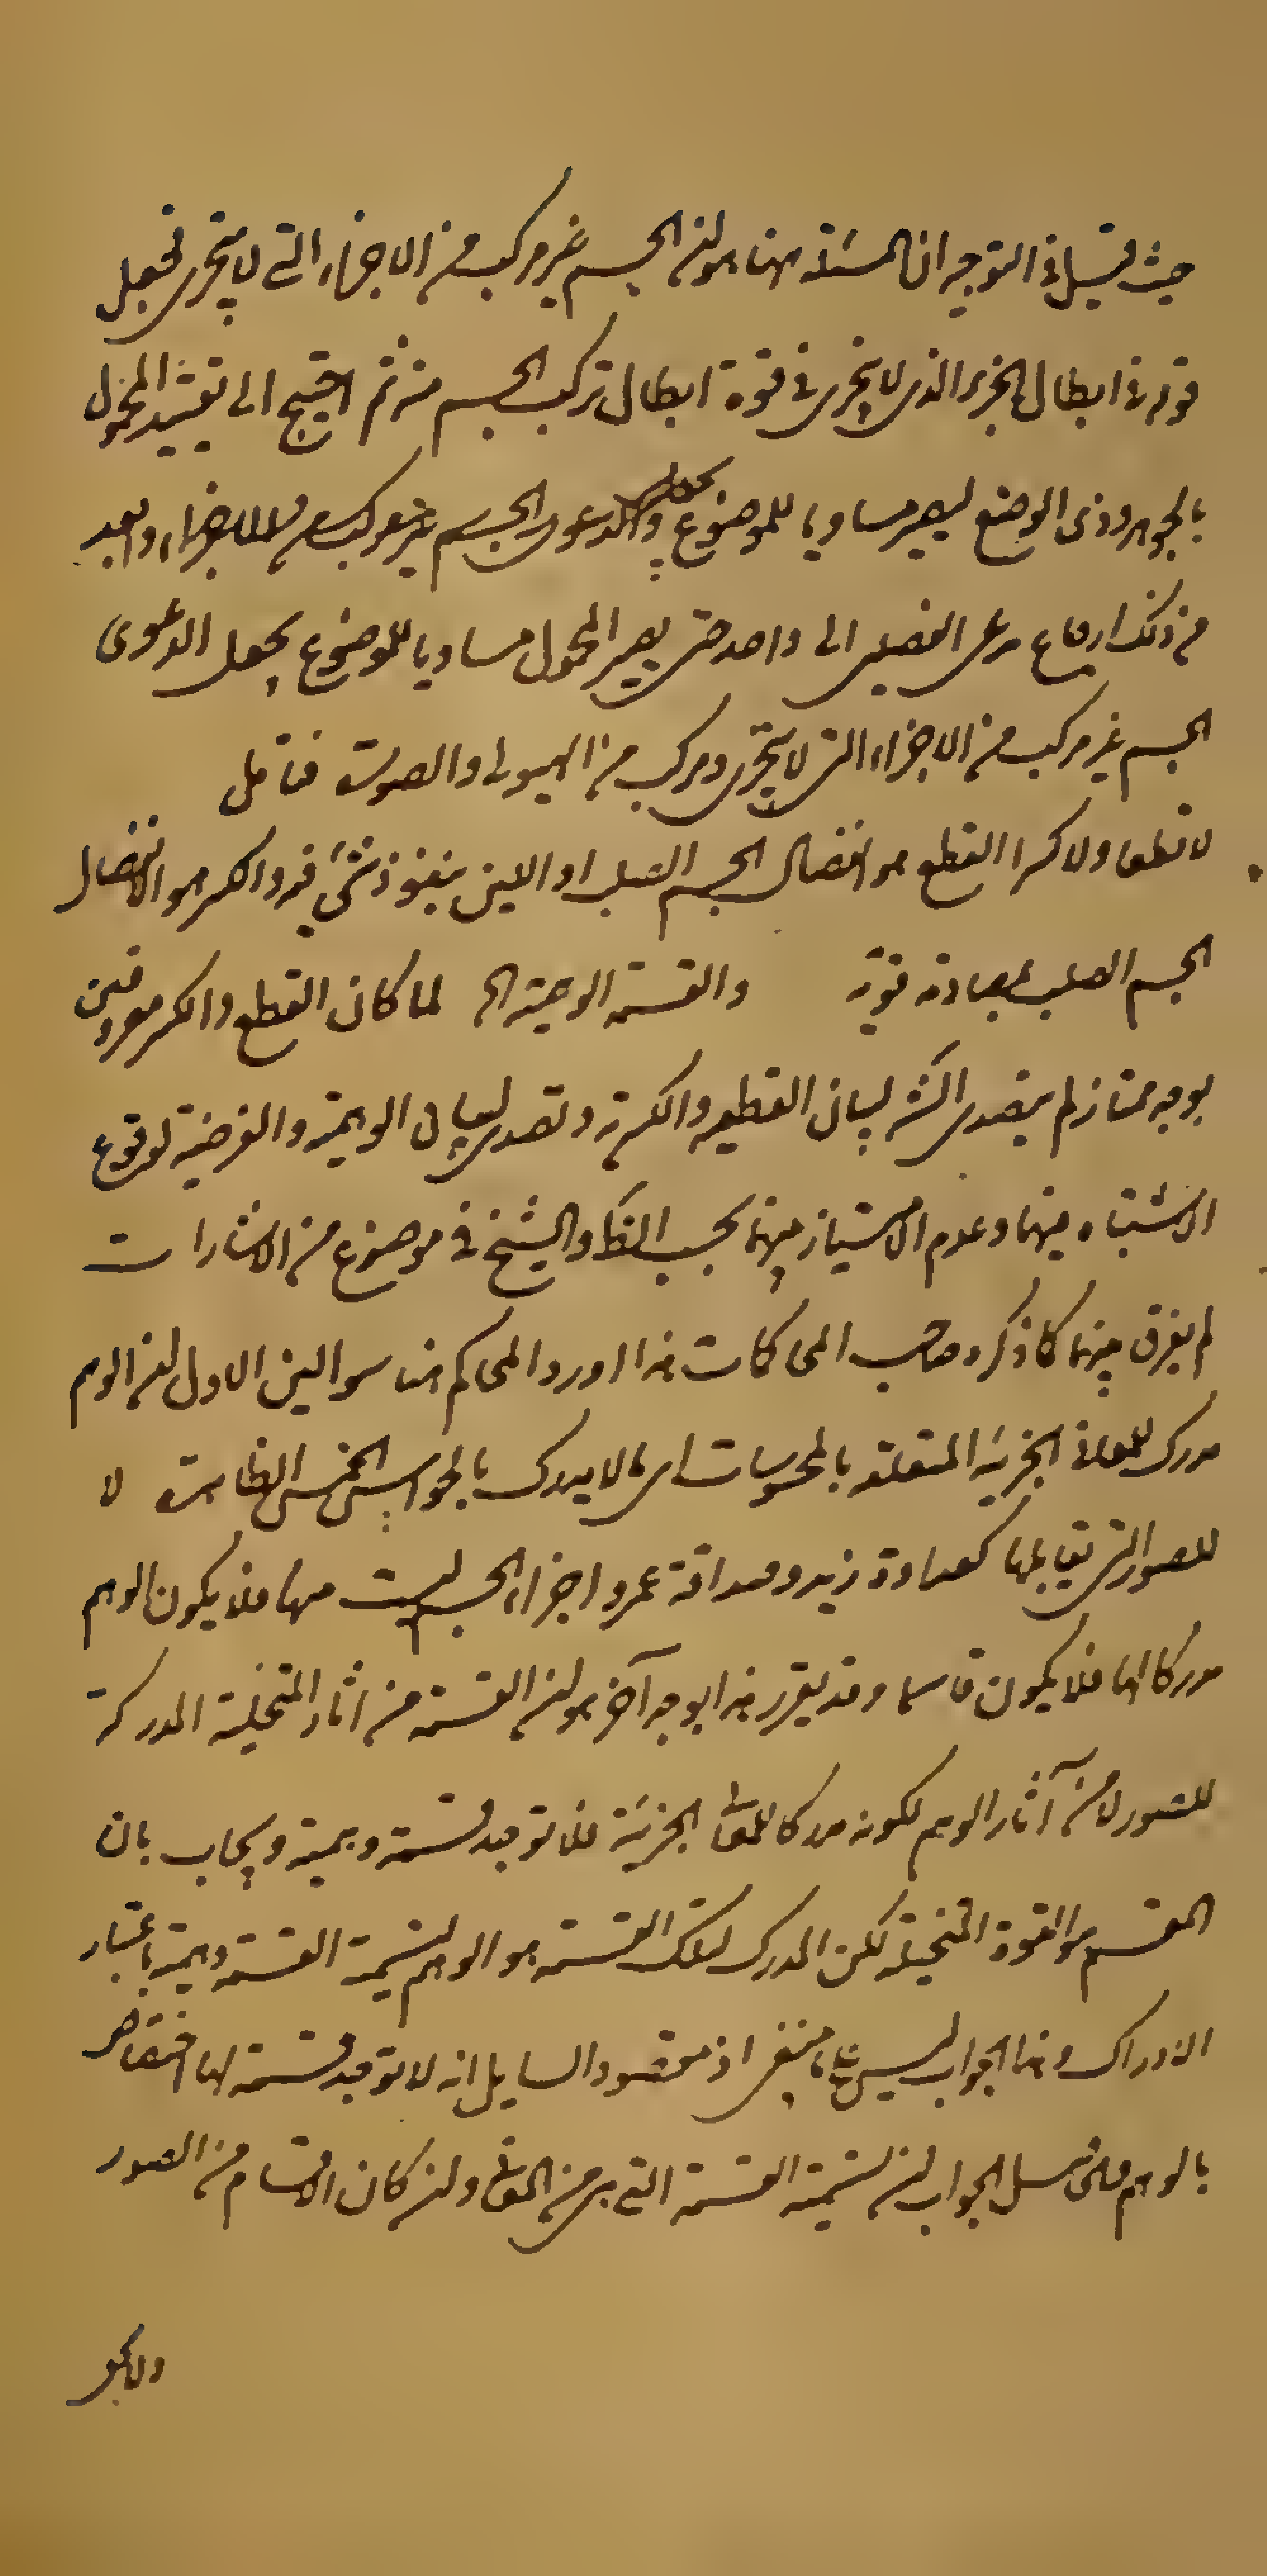 حيث قيل في التوجيه ان المسئلة ههنا هو ان الجسم غير مركب من الاجزاء التى لا يتجزى فجعل
قوله في ابطال الجزء الذى لا يتجزى في قوة ابطال تركب الجسم من ثم احتيج الى تقييد المحمول
بالجوهر وذى الوضع ليصير مساويا للموضوع بجعل الدعوى الجسم غير مركب من الاجزاء وابعد
من ذلك ارجاع مدعى الفصلين الى واحد حتى يصير المحمول مساويا للموضوع بجعل الدعوى
الجسم غير مركب من الاجزاء التى لا يتجزى ومركب من الهيولى والصورة فتامل
لا قطعا ولا كسرا القطع هو انفصال الجسم الصلب او اللين بنفوذ شئ فيه والكسر هو الانفصال
الجسم الصلب بمصادمة قوية والقسمة الوهمية الخ لما كان القطع والكسر معروفين
بوجه ممتاز لم يتصدى الش لبيان القطعية والكسرية وتصدى لبيان الوهمية والفرضية لوقوع
الاشتباه بينهما وعدم الامتياز بينهما بحسب الظ والشيخ في موضوع من الاشارات
لم يفرق بينهما كما ذكره صاحب المحاكمات هذا اورد المحاكم هنا سوالين الاول ان الوهم
مدرك للمعانى الجزئية المتعلقة بالمحسوسات اى ما لا يدرك بالحواس الخمس الظاهرة لا
للصور التى يقابلها كعداوة زيد وصداقة عمرو واجزاء الجسم ليست منها فلا يكون الوهم
مدركا لها فلا يكون قاسما وقد يقرر هذا بوجه آخر هو ان القسمة من اثار المتخيلة المدركة
للصور لا من آثار الوهم لكونه مدركا للمعانى الجزئية فلا توجد قسمة وهمية ويجاب بان
المقسم هو القوة المتخيلة لكن المدرك لتلك القسمة هو الوهم لتسمية القسمة وهمية باعتبار
الادراك وهذا الجواب ليس بما ينبغى اذ مقصود السايل انه لا توجد قسمة لها اختصاص
بالوهم فلئن سلم الجواب ان تسمية القسمة التى هى من المعانى وان كان الاقسام من الصور